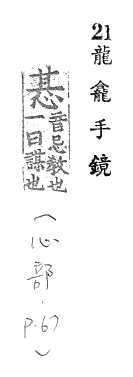 21龍龕手鏡
惎音忌教也一曰謀也
（心部.p.67）